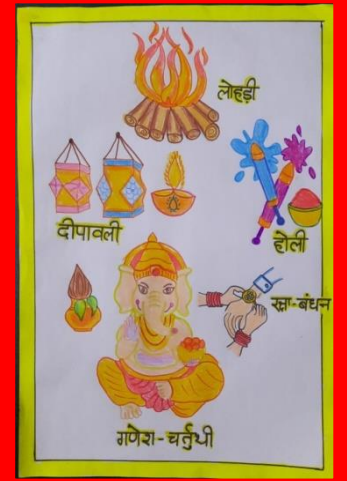 लोहड़ी
दीपावली
होली
रक्षा-बंधन
गणेश-चर्तुथी